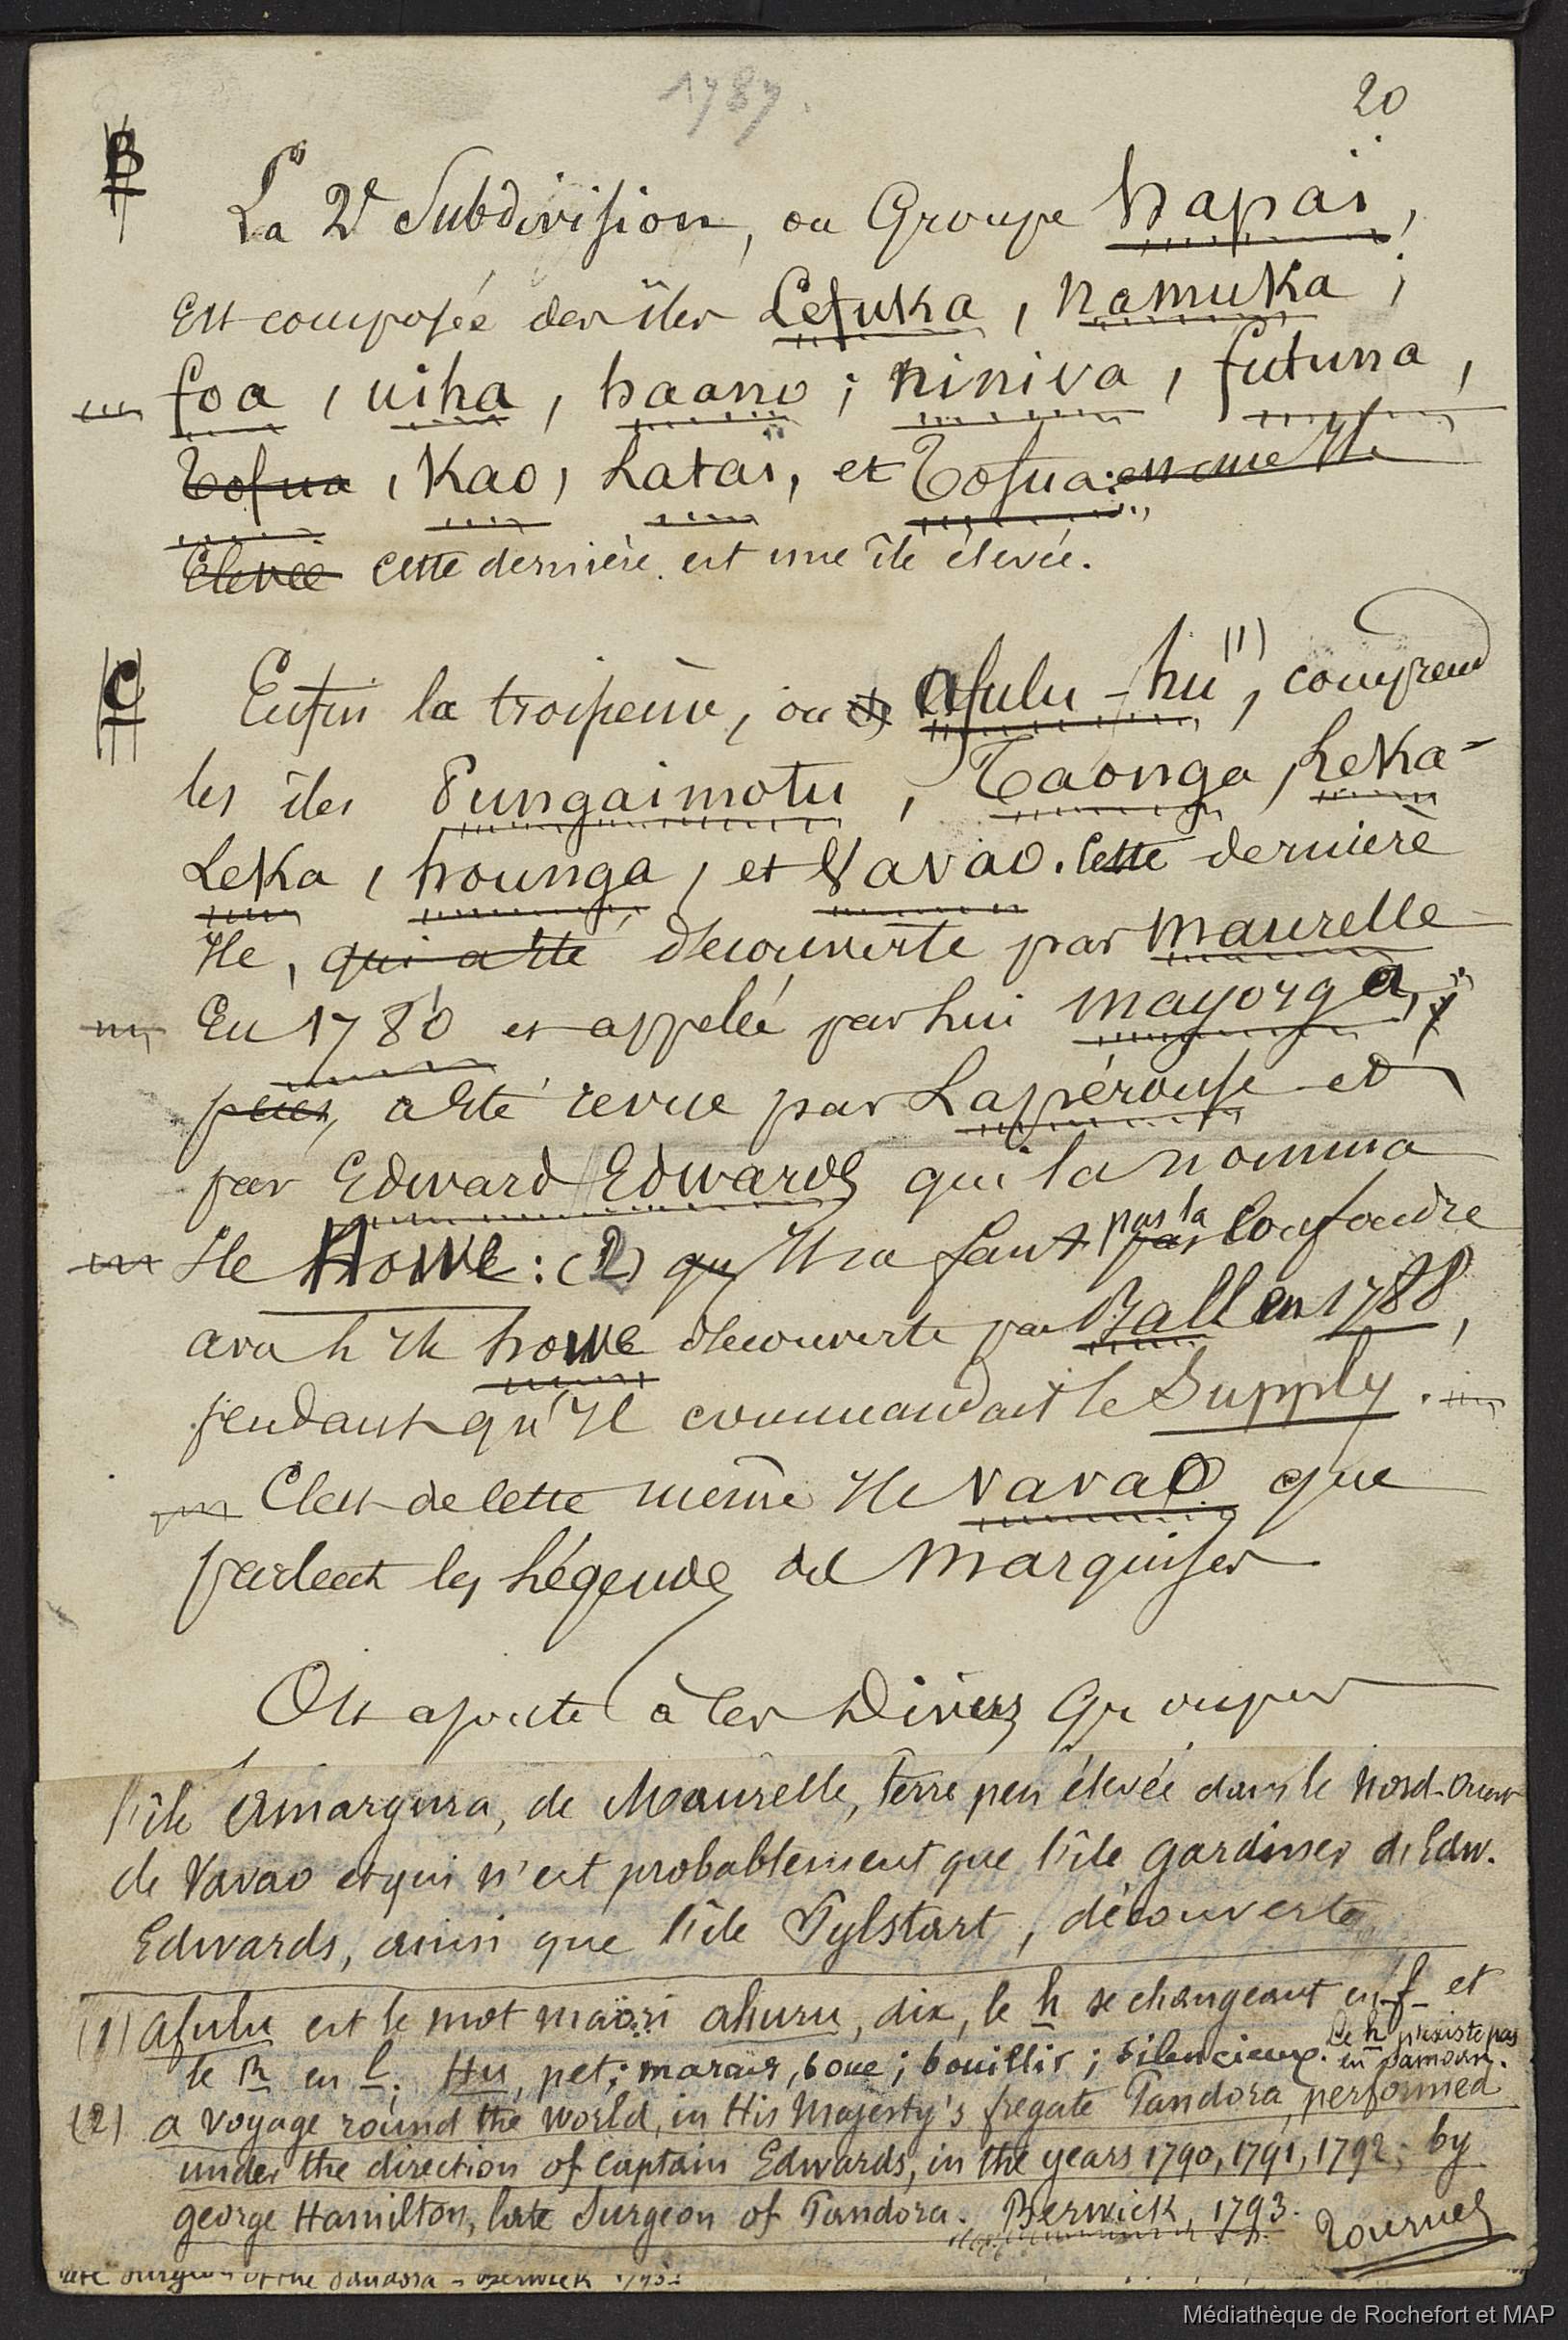 1787.
20
B
La 2e Subdivision, ou Groupe Hapaï,
Est composée des îles Lefuka, namuka,
foa, uiha, haano, niniva, futuna,
Tofua, Kao, Lataï, et Tofua: est une Ile
Elevée cette dernière est une île élevée.
C
Enfin la troisième, ou Afulu-hu (1), comprend
les îles Pungaimotu, Taonga, Leka-
Leka, hounga, et Vavao. Cette dernière
Ile, qui a été découverte par Maurelle
En 1780 et appelée par lui Mayorga,
puis, a été revue par Lapérouse et
par Edward Edwards qui la nomma
Ile Howe: (2) qu'il ne faut pas la confondre
avec l'île howe découverte par Ball en 1788,
pendant qu'il commandait le Supply.
C'est de cette même Ile vavao que
parlent les Légendes des Marquises
On ajoute à ces Divers Groupes
l'île Amargura, de Maurelle, terre peu élevée dans le Nord-Ouest
de Vavao et qui n'est probablement que l'île gardiner de Edw.
Edwards, ainsi que l'île Pylstart, découverte
(1) Afulu est le mot maöri ahuru, dix, le h se changeant en f et
le R en l. Hu, pet; marais, boue; bouillir; silencieux. Le h n'existe pas
en Samoan.
(2) a voyage round the world, in His Majesty's fregate Pandora, performed
under the direction of Captain Edwards, in the years 1790, 1791, 1792; by
george Hamilton, late Surgeon of Pandora. Berwick, 1793.
Tournez
late Surgeon of the Pandora - Berwick 1793.
Médiathèque de Rochefort et MAP